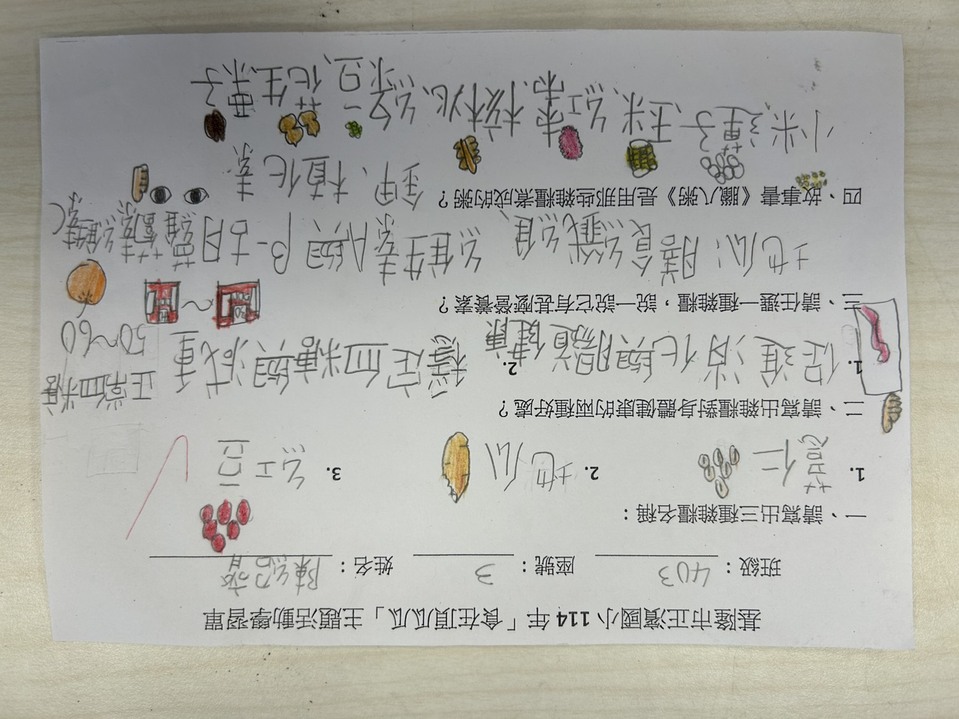 基隆市正濱國小 114 年「食在頂瓜瓜」主題活動學習單
班級：403 座號：3 姓名：陳
一、請寫出三種雜糧名稱：
1. 薏仁 2. 地瓜 3. 紅豆
二、請寫出雜糧對身體健康的兩種好處？
1. 促進消化與腸道健康 2. 穩定血糖與減重
正常血糖
50~60
三、請任選一種雜糧，說一說它有甚麼營養素？
地瓜：膳食纖維、維生素A與β-胡蘿蔔素
鉀、植化素
四、故事書《臘八粥》是用那些雜糧煮成的粥？
小米、蓮子、玉米、紅棗、核桃、
花生、栗子